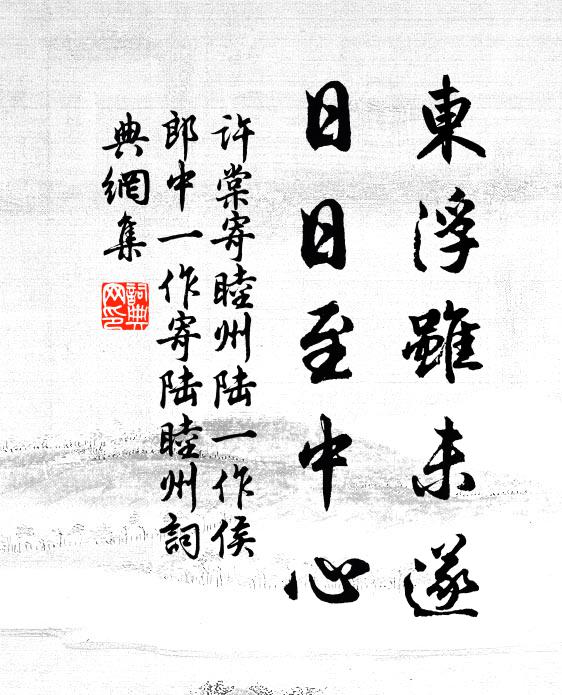 東浮雖未遂
日日至中心
許棠寄睦州陆一作侯
郎中一作寄陆睦州詞
典網集
詞典网印